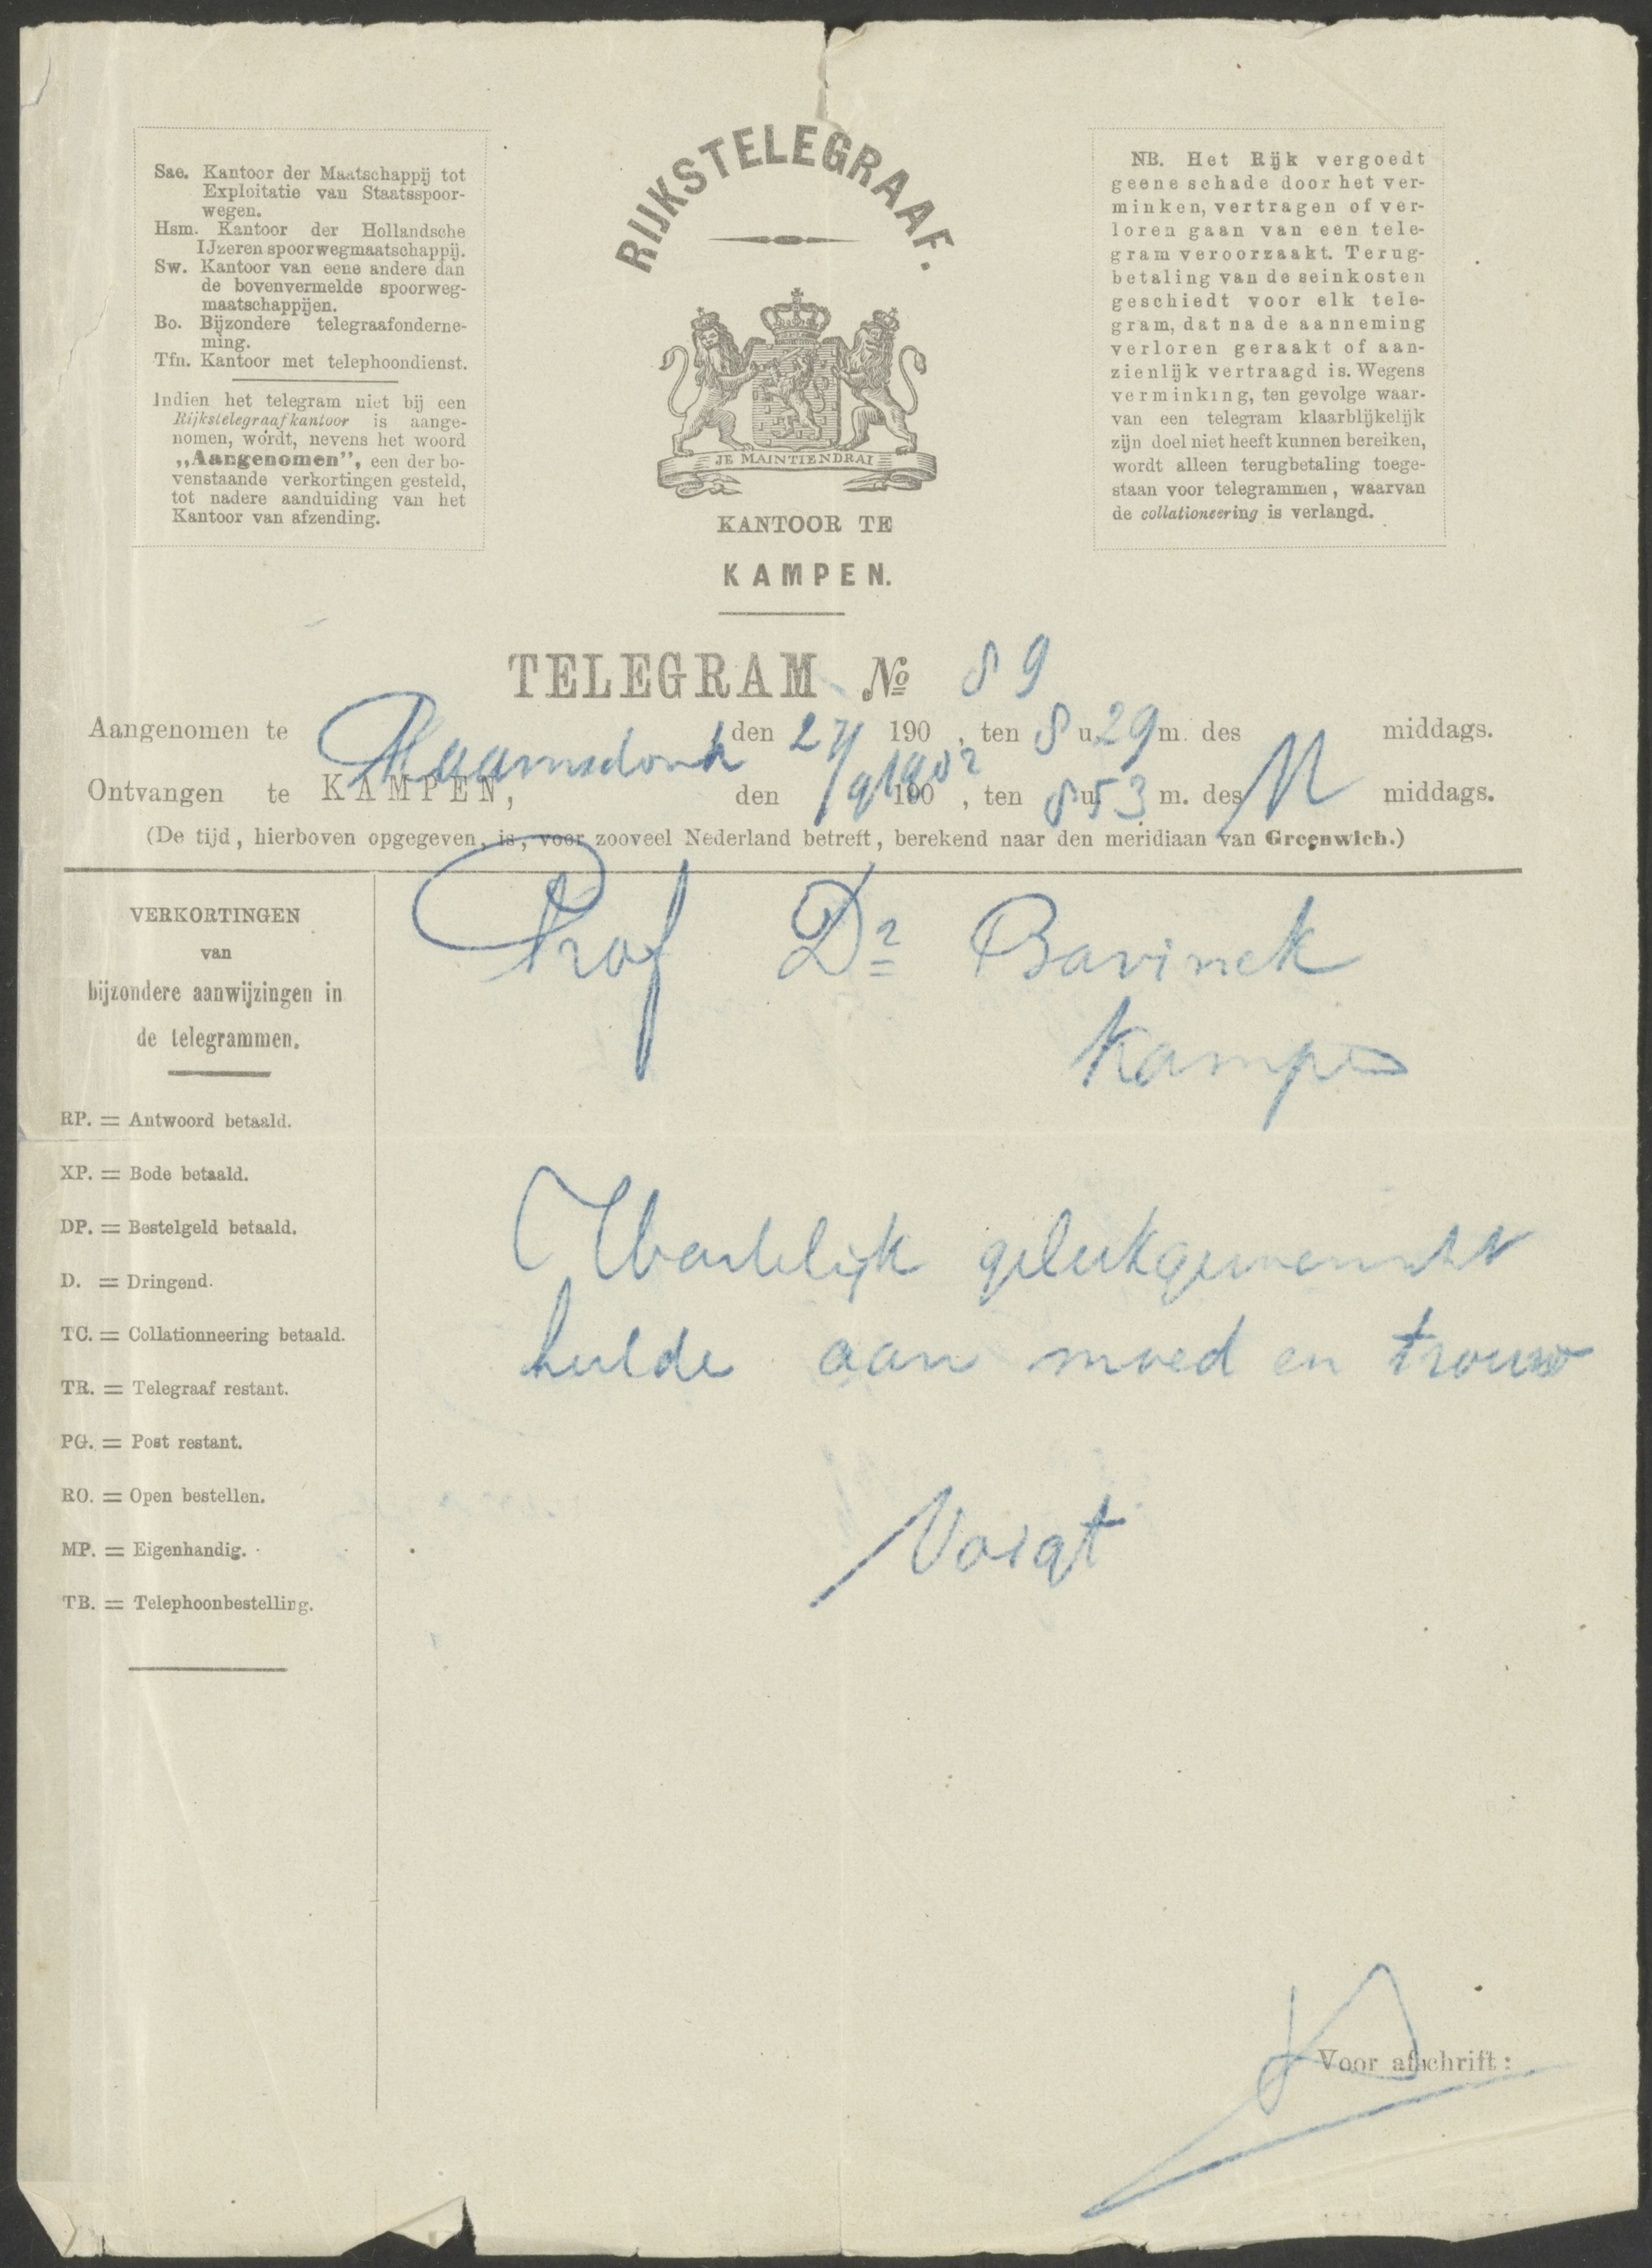 Sae. Kantoor der Maatschappij tot
Exploitatie van Staatsspoor-
wegen.
Hsm. Kantoor der Hollandsche
IJzeren spoorwegmaatschappij.
Sw. Kantoor van eene andere dan
de bovenvermelde spoorweg-
maatschappijen.
Bo. Bijzondere telegraafonderne-
ming.
Tfn. Kantoor met telephoondienst.
Indien het telegram niet bij een
Rijkstelegraafkantoor is aange-
nomen, wordt, nevens het woord
„Aangenomen”, een der bo-
venstaande verkortingen gesteld,
tot nadere aanduiding van het
Kantoor van afzending.
RIJKSTELEGRAAF.
JE MAINTIENDRAI
KANTOOR TE
KAMPEN.
NB. Het Rijk vergoedt
geene schade door het ver-
minken, vertragen of ver-
loren gaan van een tele-
gram veroorzaakt. Terug-
betaling van de seinkosten
geschiedt voor elk tele-
gram, dat na de aanneming
verloren geraakt of aan-
zienlijk vertraagd is. Wegens
verminking, ten gevolge waar-
van een telegram klaarblijkelijk
zijn doel niet heeft kunnen bereiken,
wordt alleen terugbetaling toege-
staan voor telegrammen, waarvan
de collationeering is verlangd.
TELEGRAM No 89
Aangenomen te Raamsdonk den 27/ 190 , ten 8 u 29 m. des middags.
Ontvangen te KAMPEN, den /9 1902 190 , ten 8 u 53 m. des N middags.
(De tijd, hierboven opgegeven, is, voor zooveel Nederland betreft, berekend naar den meridiaan van Greenwich.)
VERKORTINGEN
van
bijzondere aanwijzingen in
de telegrammen.
RP. = Antwoord betaald.
XP. = Bode betaald.
DP. = Bestelgeld betaald.
D. = Dringend.
TC. = Collationneering betaald.
TR. = Telegraaf restant.
PG. = Post restant.
RO. = Open bestellen.
MP. = Eigenhandig.
TB. = Telephoonbestelling.
Prof Dr Bavinck
Kampen
Hartelijk gelukgewenscht
hulde aan moed en trouw
Voigt
Voor afschrift: